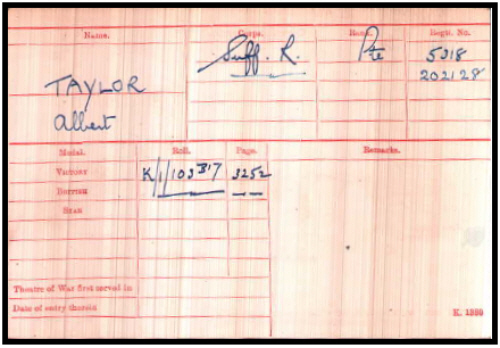 Name. Corps. Rank. Regtl. No.
TAYLOR Suff. R. Pte 5318
Albert 202128
Medal. Roll. Page. Remarks.
Victory K/1/103 B17 3252
British — —
Star
Theatre of War first served in
Date of entry therein
K. 1380